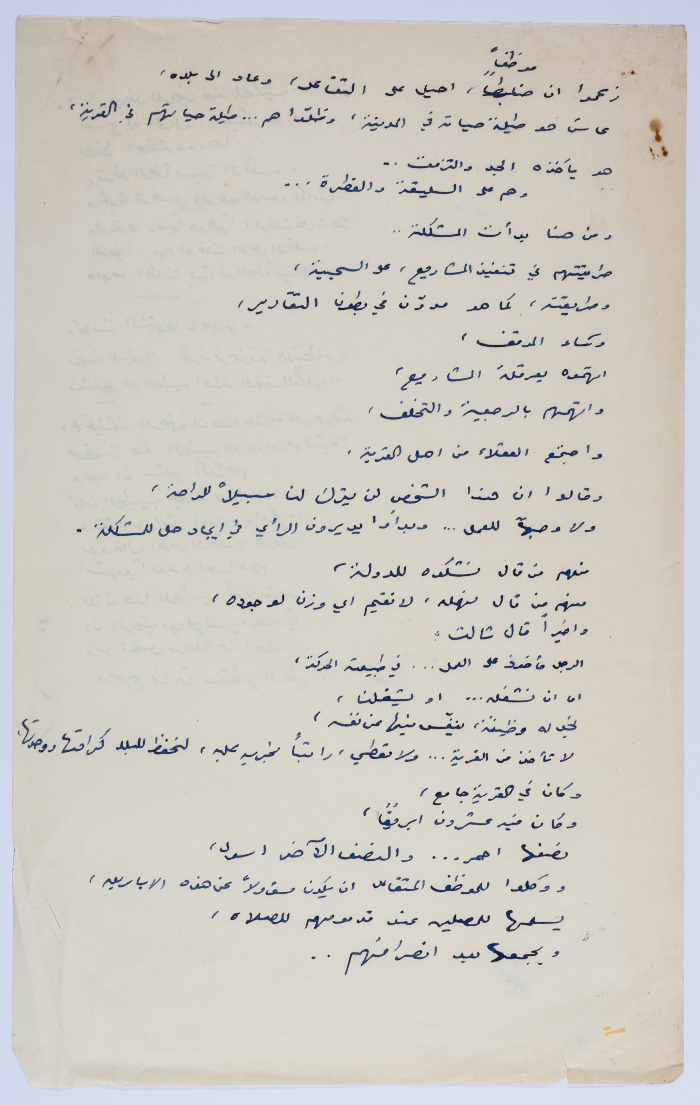 موظفاً
زعموا ان ضابطاً، احيل على التقاعد، وعاد الى بلده،
عاش هو طيلة حياته في المدينة، وظلوا هم... طيلة حياتهم في القرية،
هو يأخذه الجد والتزمت..
وهم على السليقة والفطرة...
ومن هنا بدأت المشكلة..
طريقتهم في تنفيذ المشاريع، على السجية،
وطريقته، كما هو مدوّن في بطون التقارير،
وساء الموقف،
اتهموه بعرقلة المشاريع،
واتهمهم بالرجعية والتخلف،
واجتمع العقلاء من اهل القرية،
وقالوا ان هذا الشخص لن يترك لنا سبيلاً للراحة،
ولا وجهاً للعمل... وبدأوا يديرون الرأي في ايجاد حل للمشكلة.
منهم من قال نشكوه للدولة،
منهم من قال نهمله، لا نقيم اي وزن لوجوده،
واخيراً قال ثالث:
الرجل مأخوذ على العمل... في طبيعته الحركة،
اما ان نشغله... او يشغلنا،
له وظيفة، ينفّس فيها عن نفسه،
لا تأخذ من القرية... ولا تعطي، راتباً نجريه عليه، لنحفظ للبلد كرامتها ووحدتها،
وكان في القرية جامع،
وكان فيه عشرون ابريقاً،
نصفها احمر... والنصف الآخر اسود،
ووكلوا للموظف المتقاعد ان يكون مسؤولاً عن هذه الاباريق،
يسلمها للمصلين عند قدومهم للصلاة،
ويجمعها بعد انصرافهم..